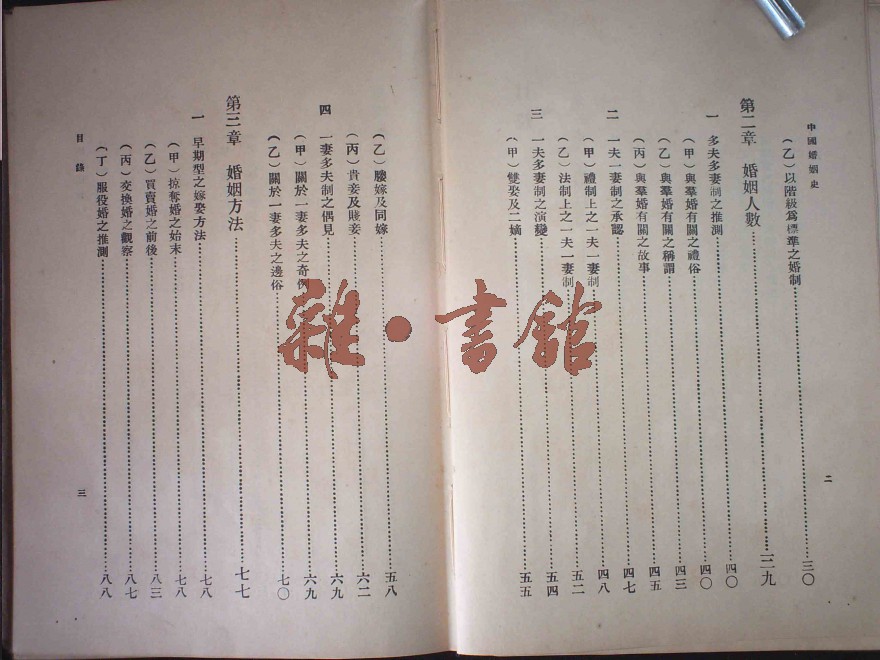 中國婚姻史
(乙)以階級爲標準之婚制……三〇
第二章 婚姻人數……三九
一 多夫多妻制之推測……四〇
(甲)與羣婚有關之禮俗……四〇
(乙)與羣婚有關之稱謂……四三
(丙)與羣婚有關之故事……四五
二 一夫一妻制之承認……四七
(甲)禮制上之一夫一妻制……四八
(乙)法制上之一夫一妻制……五二
三 一夫多妻制之演變……五四
(甲)雙娶及二嫡……五五
二
(乙)媵嫁及同嫁……五八
(丙)貴妾及賤妾……六二
四 一妻多夫制之偶見……六九
(甲)關於一妻多夫之奇例……六九
(乙)關於一妻多夫之邊俗……七〇
第三章 婚姻方法……七七
一 早期型之嫁娶方法……七八
(甲)掠奪婚之始末……七八
(乙)買賣婚之前後……八三
(丙)交換婚之觀察……八七
(丁)服役婚之推測……八八
目錄
三
雜·書館